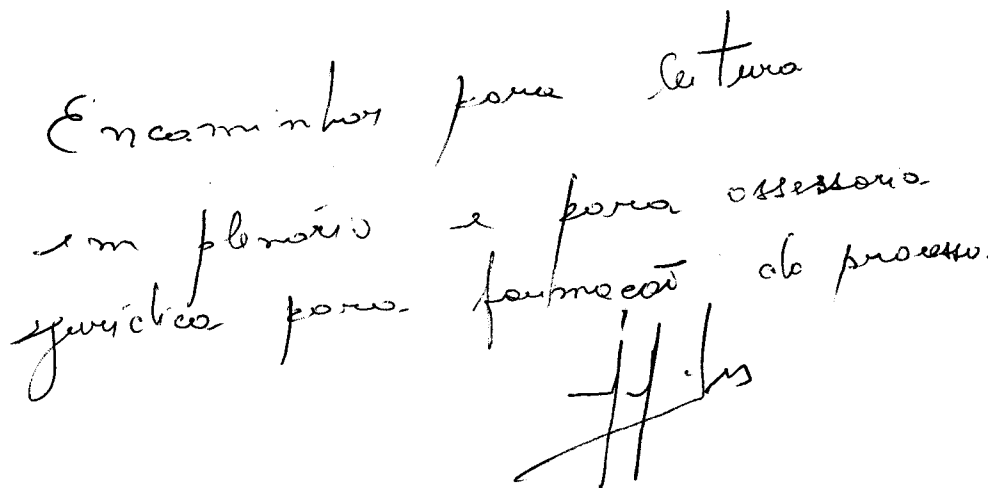 Encaminhar para leitura
em plenário e para assessoria
jurídica para formação do processo.